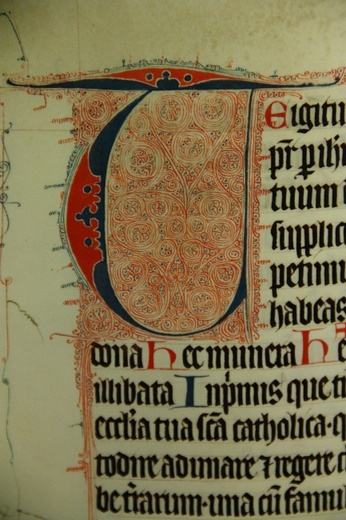 T Eigitu
pr̄ p filiu
tuum i
supplic
petimu
habeas
dona hec munera h
illibata Inp̄mis que ti
ecclīa tua sc̄a catholica·q
todire adunare ⁊ regere
be tr̄arum·una cū famul